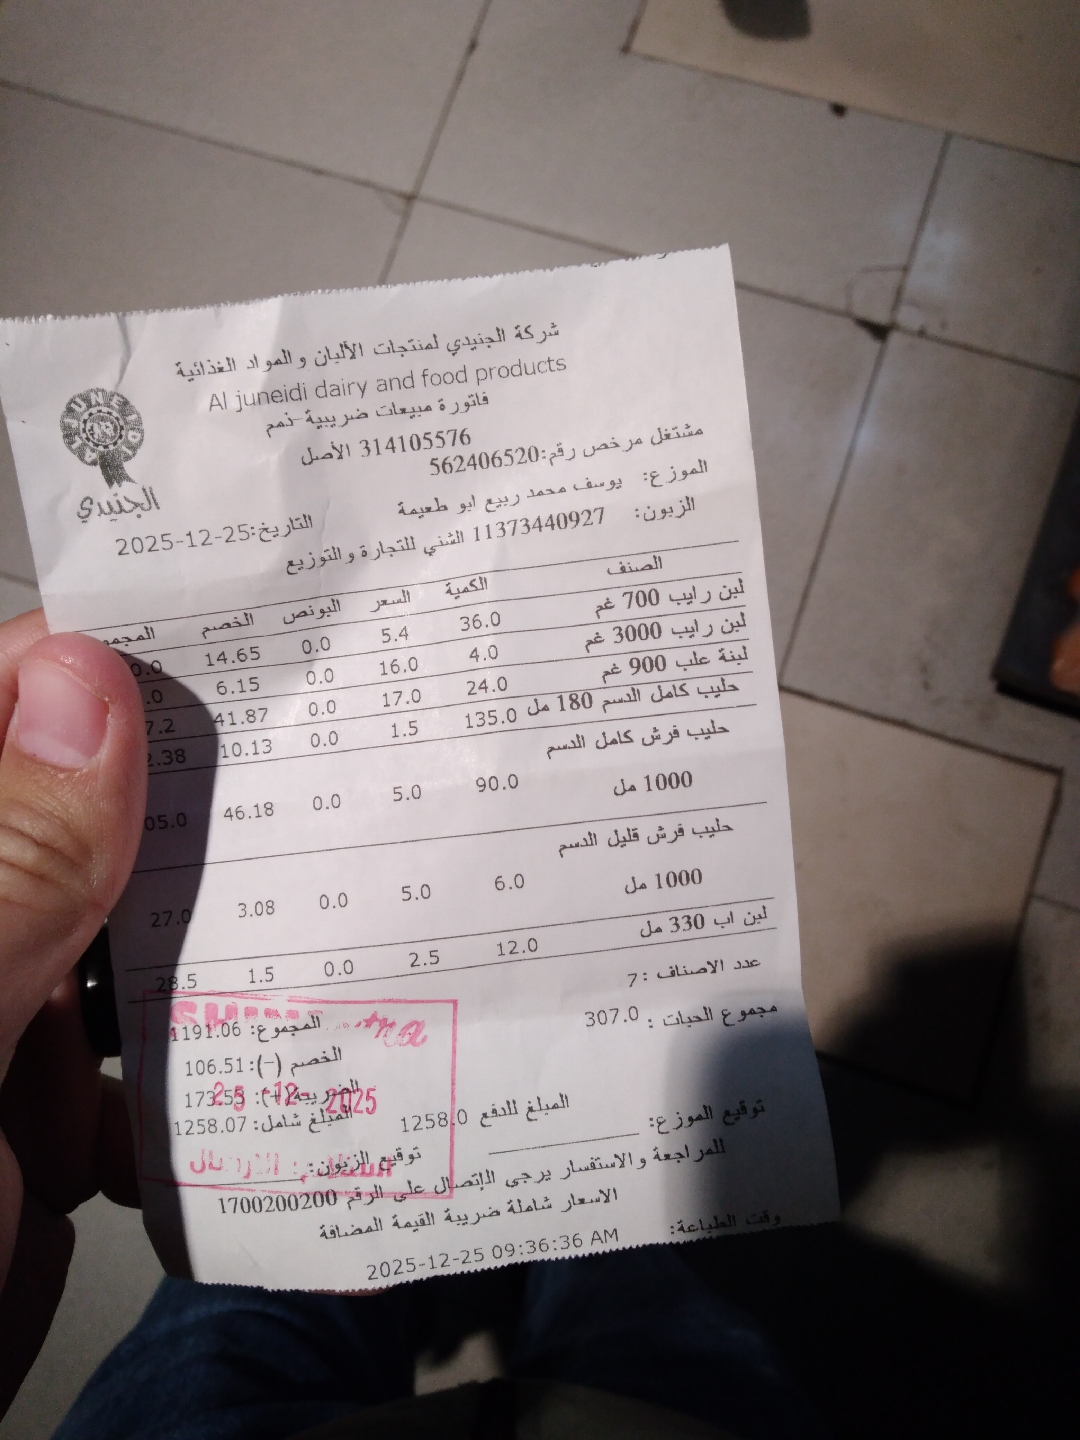 شركة الجنيدي لمنتجات الألبان والمواد الغذائية
Al juneidi dairy and food products
فاتورة مبيعات ضريبية-ذمم
314105576 الأصل
مشتغل مرخص رقم:562406520
الموزع: يوسف محمد ربيع ابو طعيمة
الزبون: 11373440927 الشني للتجارة والتوزيع
التاريخ:2025-12-25
JUNEIDI
الجنيدي
الصنف الكمية السعر البونص الخصم
لبن رايب 700 غم 36.0 5.4 0.0 14.65
لبن رايب 3000 غم 4.0 16.0 0.0 6.15
لبنة علب 900 غم 24.0 17.0 0.0 41.87
حليب كامل الدسم 180 مل 135.0 1.5 0.0 10.13
حليب فرش كامل الدسم
1000 مل 90.0 5.0 0.0 46.18
حليب فرش قليل الدسم
1000 مل 6.0 5.0 0.0 3.08 27.0
لبن اب 330 مل 12.0 2.5 0.0 1.5 28.5
عدد الاصناف :7
مجموع الحبات : 307.0
المجموع: 1191.06
الخصم (-): 106.51
الضريبة(+): 173.53
المبلغ شامل: 1258.07
25-12-2025
المبلغ للدفع 1258.0
توقيع الموزع:
توقيع الزبون:
للمراجعة والاستفسار يرجى الإتصال على الرقم 1700200200
الاسعار شاملة ضريبة القيمة المضافة
وقت الطباعة: 2025-12-25 09:36:36 AM